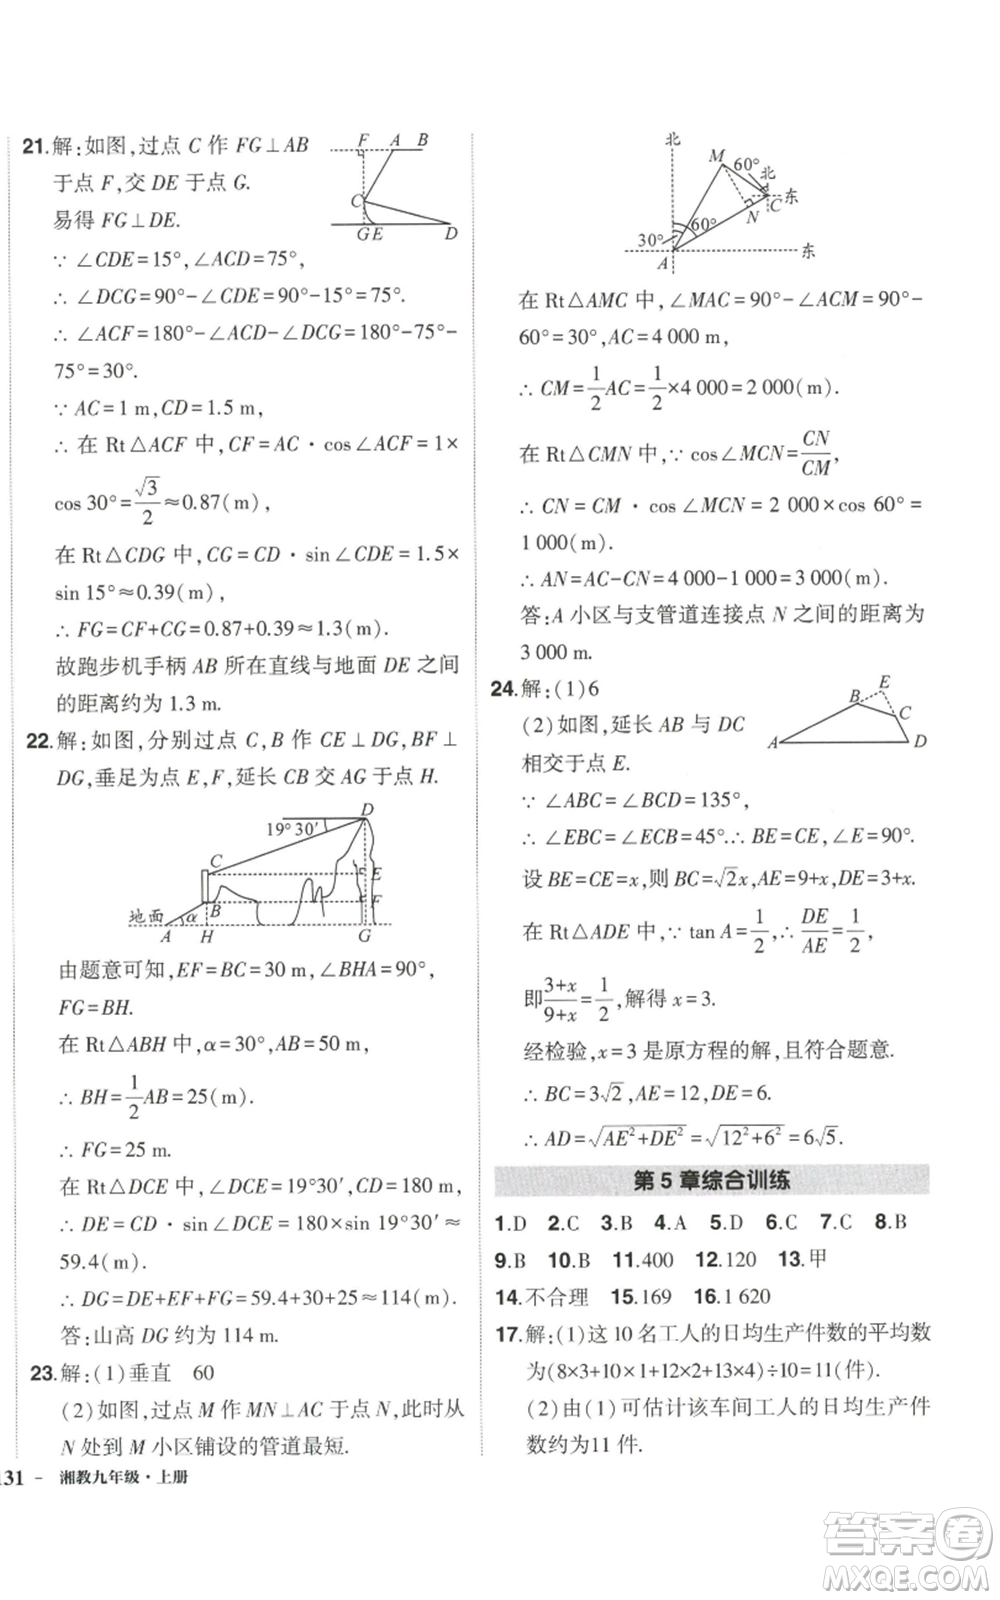 21.解:如图,过点 C 作 FG⊥AB
于点 F,交 DE 于点 G.
易得 FG⊥DE.
∵ ∠CDE=15°,∠ACD=75°,
∴ ∠DCG=90°-∠CDE=90°-15°=75°.
∴ ∠ACF=180°-∠ACD-∠DCG=180°-75°-
75°=30°.
∵ AC=1 m,CD=1.5 m,
∴ 在 Rt△ACF 中,CF=AC·cos∠ACF=1×
cos 30°=√3/2≈0.87(m),
在 Rt△CDG 中,CG=CD·sin∠CDE=1.5×
sin 15°≈0.39(m),
∴ FG=CF+CG=0.87+0.39≈1.3(m).
故跑步机手柄 AB 所在直线与地面 DE 之间
的距离约为 1.3 m.
F A B
C
G E D
22.解:如图,分别过点 C,B 作 CE⊥DG,BF⊥
DG,垂足为点 E,F,延长 CB 交 AG 于点 H.
D
19°30′
C E
B F
地面 α
A H G
由题意可知,EF=BC=30 m,∠BHA=90°,
FG=BH.
在 Rt△ABH 中,α=30°,AB=50 m,
∴ BH=1/2AB=25(m).
∴ FG=25 m.
在 Rt△DCE 中,∠DCE=19°30′,CD=180 m,
∴ DE=CD·sin∠DCE=180×sin 19°30′≈
59.4(m).
∴ DG=DE+EF+FG=59.4+30+25≈114(m).
答:山高 DG 约为 114 m.
23.解:(1)垂直 60
(2)如图,过点 M 作 MN⊥AC 于点 N,此时从
N 处到 M 小区铺设的管道最短.
131 - 湘教九年级·上册
北
M 60° 北
东
C
N
60°
30°
A 东
在 Rt△AMC 中,∠MAC=90°-∠ACM=90°-
60°=30°,AC=4 000 m,
∴ CM=1/2AC=1/2×4 000=2 000(m).
在 Rt△CMN 中,∵ cos∠MCN=CN/CM,
∴ CN=CM·cos∠MCN=2 000×cos 60°=
1 000(m).
∴ AN=AC-CN=4 000-1 000=3 000(m).
答:A 小区与支管道连接点 N 之间的距离为
3 000 m.
24.解:(1)6
(2)如图,延长 AB 与 DC
相交于点 E.
E
B
C
A D
∵ ∠ABC=∠BCD=135°,
∴ ∠EBC=∠ECB=45°.∴ BE=CE,∠E=90°.
设 BE=CE=x,则 BC=√2x,AE=9+x,DE=3+x.
在 Rt△ADE 中,∵ tan A=1/2,∴ DE/AE=1/2,
即(3+x)/(9+x)=1/2,解得 x=3.
经检验,x=3 是原方程的解,且符合题意.
∴ BC=3√2,AE=12,DE=6.
∴ AD=√(AE²+DE²)=√(12²+6²)=6√5.
第 5 章综合训练
1.D 2.C 3.B 4.A 5.D 6.C 7.C 8.B
9.B 10.B 11.400 12.120 13.甲
14.不合理 15.169 16.1 620
17.解:(1)这 10 名工人的日均生产件数的平均数
为(8×3+10×1+12×2+13×4)÷10=11(件).
(2)由(1)可估计该车间工人的日均生产件
件数约为11 件.
答案卷
MXQE.COM